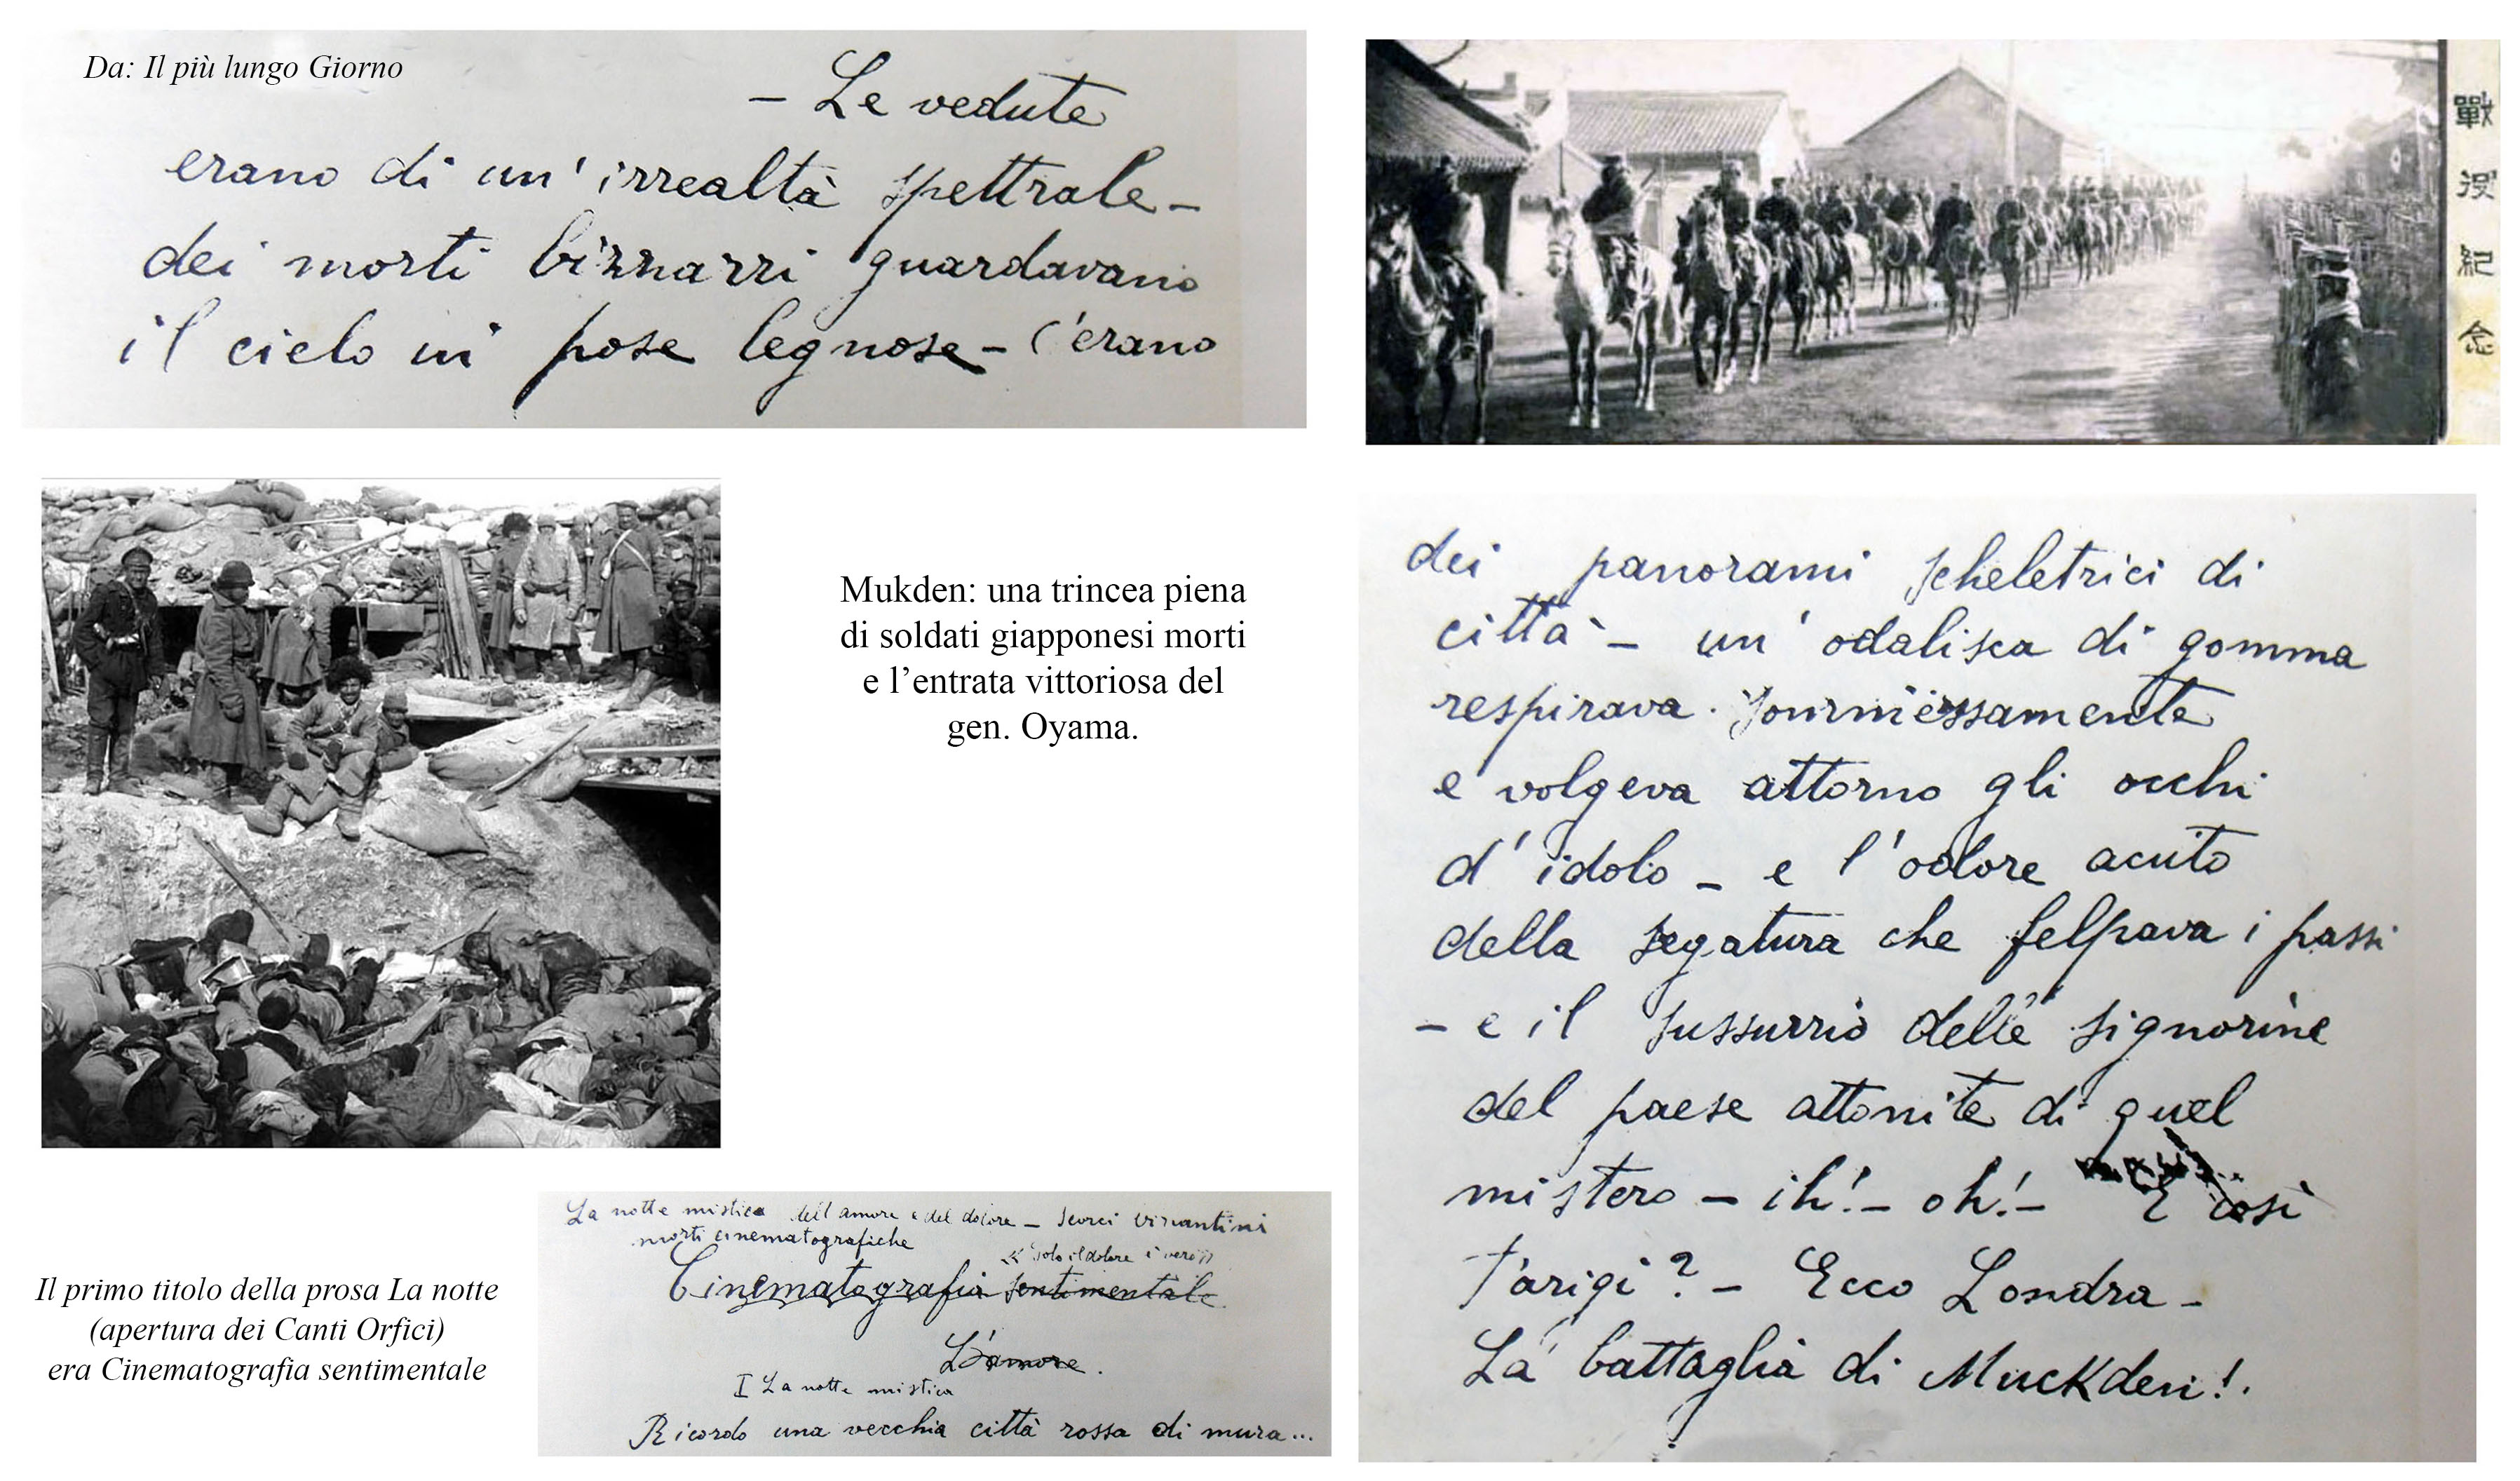 Da: Il più lungo Giorno
– Le vedute
erano di un' irrealtà spettrale –
dei morti bizzarri guardavano
il cielo in pose legnose – C'erano
戰
役
紀
念
dei panorami scheletrici di
città – un' odalisca di gomma
respirava . sommessamente
e volgeva attorno gli occhi
d' idolo – e l' odore acuto
della segatura che felpava i passi
– e il sussurrio delle signorine
del paese attonite di quel
mistero – ih! – oh! – È così
Parigi? – Ecco Londra –
La battaglia di Muckden!.
Mukden: una trincea piena
di soldati giapponesi morti
e l’entrata vittoriosa del
gen. Oyama.
Il primo titolo della prosa La notte
(apertura dei Canti Orfici)
era Cinematografia sentimentale
La notte mistica dell'amore e del dolore – Scorci bizantini
morti cinematografiche
« Solo il dolore è vero »
Cinematografia sentimentale
L'amore.
I La notte mistica
Ricordo una vecchia città rossa di mura...